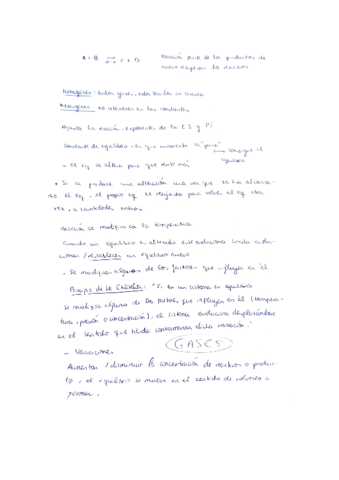 A + B ⇌ C + D   Reacción donde los productos de
nuevo explican la reacción
Homogéneo - todos gases, todos
Heterogéneo - no intervienen en las constantes
Ajusta la reacción, exponente de la [ ] y Pi
Constante de equilibrio, en que momento se "para"
→ consigue el
equilibrio
- El eq se altera para que rente más
• Si se produce una alteración una vez que se ha alcanza-
do el eq, el propio eq se reajusta para volver al eq otra
vez, a cantidades nuevas.
reacción se modifica con la temperatura
Cuando un equilibrio es alterado este evoluciona hasta
/establecer un equilibrio nuevo
- Se modifican algunos de los factores que influyen en él
Principio de Le Châtelier: "Si en un sistema en equilibrio
se modifica alguno de los factores que influyen en él (tempera-
tura, presión o concentración), el sistema evoluciona desplazándose
en el sentido que tienda contrarrestar dicha variación."
GASES
- Variaciones
Aumentar / disminuir la concentración de reactivos o produc-
to, el equilibrio se mueve en el sentido de volverlo a
formar.